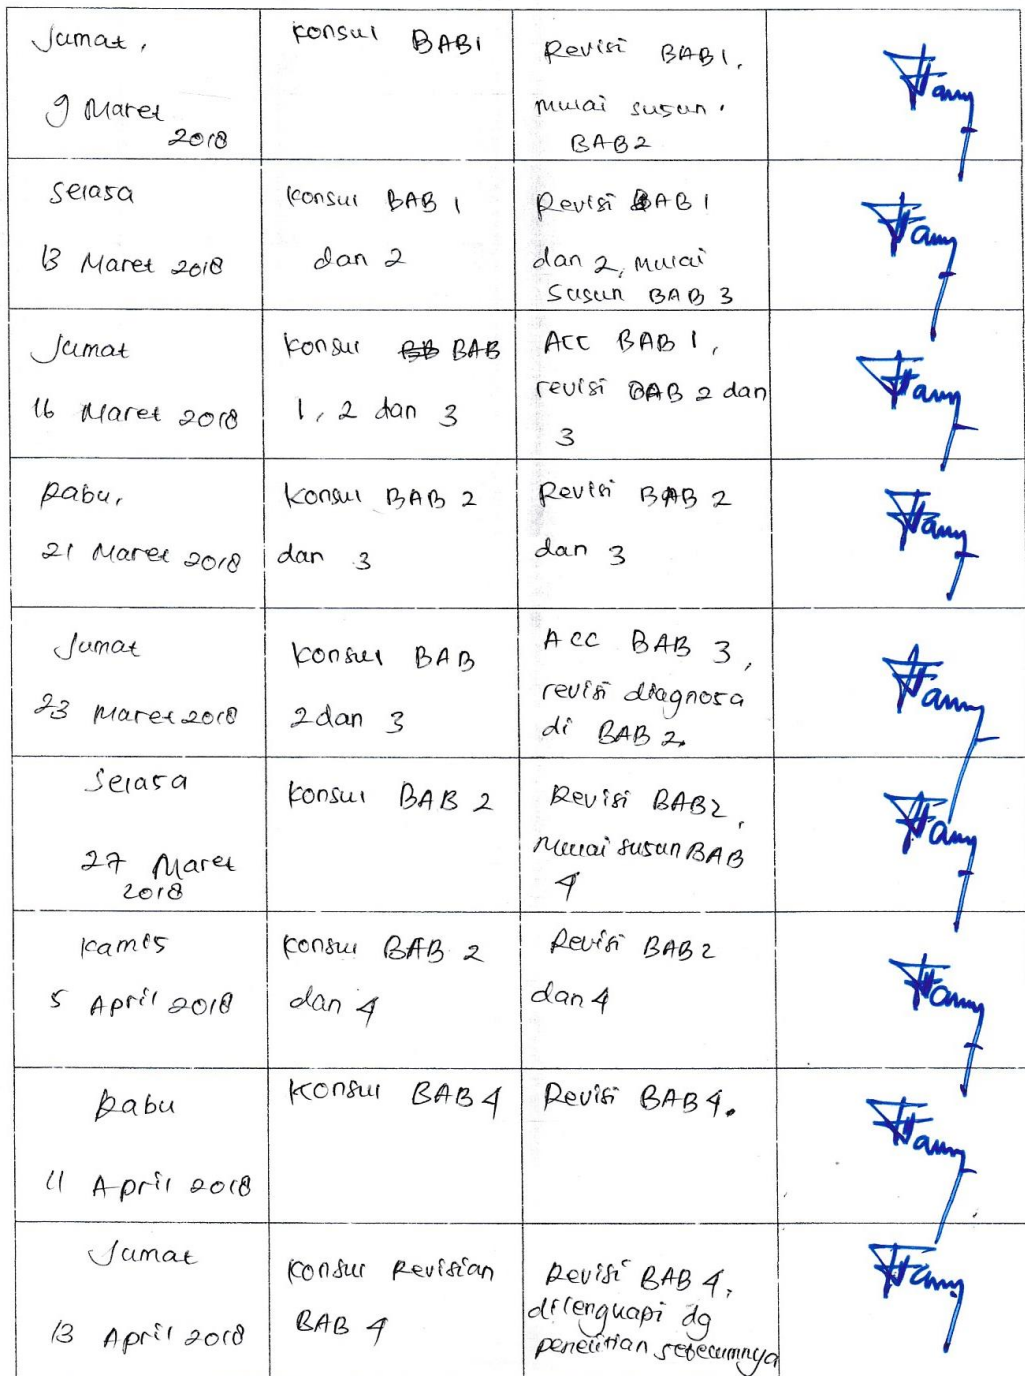 Jumat,
9 Maret
2018
Konsul BAB1
Revisi BAB1,
mulai susun.
BAB2
Selasa
13 Maret 2018
Konsul BAB 1
dan 2
Revisi BAB 1
dan 2, mulai
susun BAB 3
Jumat
16 Maret 2018
Konsul BAB
1, 2 dan 3
ACC BAB 1,
revisi BAB 2 dan
3
Rabu,
21 Maret 2018
Konsul BAB 2
dan 3
Revisi BAB 2
dan 3
Jumat
23 Maret 2018
Konsul BAB
2 dan 3
ACC BAB 3,
revisi diagnosa
di BAB 2.
Selasa
27 Maret
2018
Konsul BAB 2
Revisi BAB2,
mulai susun BAB
4
Kamis
5 April 2018
Konsul BAB 2
dan 4
Revisi BAB2
dan 4
Rabu
11 April 2018
Konsul BAB 4
Revisi BAB 4.
Jumat
13 April 2018
Konsul Revisian
BAB 4
Revisi BAB 4,
dilengkapi dg
penelitian sebelumnya